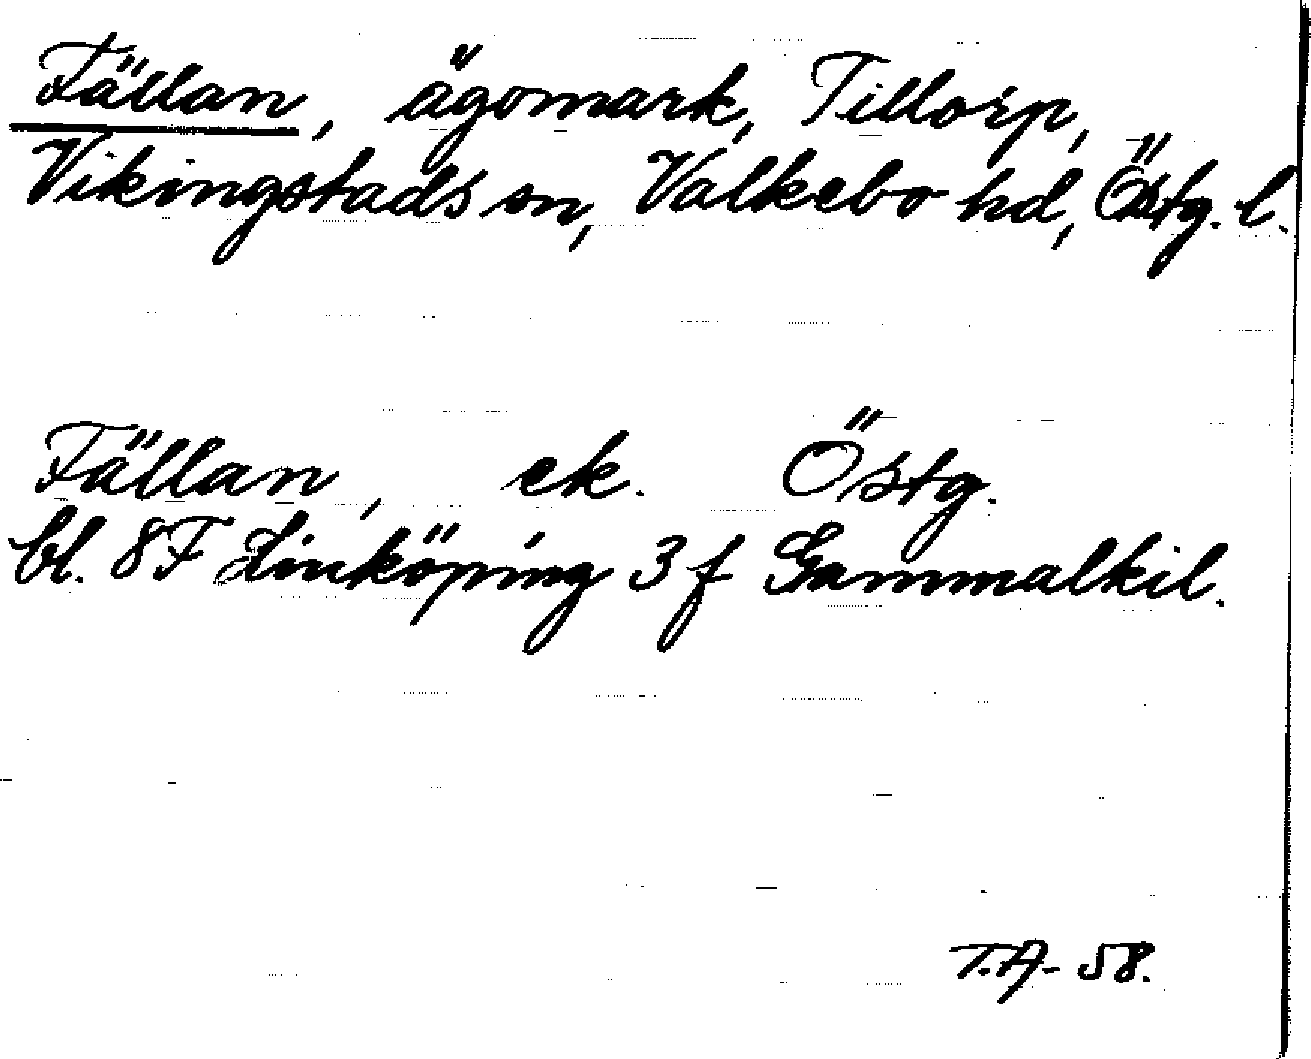 Fällan, ägomark, Tillorp,
Vikingstads sn, Valkebo hd, Östg. l.
Fällan, ek. Östg.
bl. 8F Linköping 3 f Gammalkil.
T.A- 58.